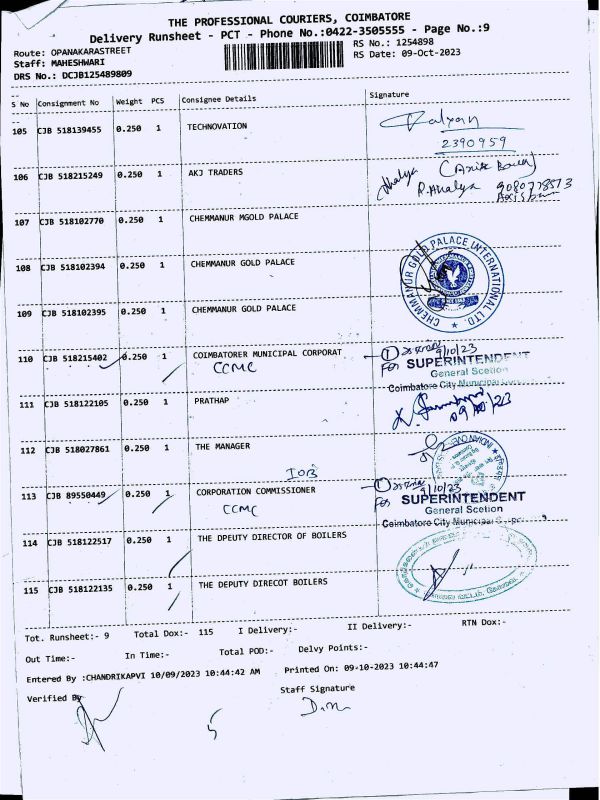 THE PROFESSIONAL COURIERS, COIMBATORE
Delivery Runsheet - PCT - Phone No.:0422-3505555 - Page No.:9
Route: OPANAKARASTREET
RS No.: 1254898
Staff: MAHESHWARI
RS Date: 09-Oct-2023
DRS No.: DCJB125489809
S No Consignment No Weight PCS Consignee Details Signature
105 CJB 518139455 0.250 1 TECHNOVATION Kalyan
2390959
106 CJB 518215249 0.250 1 AKJ TRADERS Ahalya
R.Ahalya 9080778573
107 CJB 518102770 0.250 1 CHEMMANUR MGOLD PALACE
108 CJB 518102394 0.250 1 CHEMMANUR GOLD PALACE
CHEMMANUR GOLD PALACE INTERNATIONAL LTD.
109 CJB 518102395 0.250 1 CHEMMANUR GOLD PALACE
110 CJB 518215402 0.250 1 COIMBATORER MUNICIPAL CORPORAT
CCMC
① 9/10/23
For SUPERINTENDENT
General Scetion
Coimbatore City Municipal
111 CJB 518122105 0.250 1 PRATHAP
09/10/23
112 CJB 518027861 0.250 1 THE MANAGER
IOB
113 CJB 89550449 0.250 1 CORPORATION COMMISSIONER
CCMC
① 9/10/23
For SUPERINTENDENT
General Scetion
Coimbatore City Municipal
114 CJB 518122517 0.250 1 THE DPEUTY DIRECTOR OF BOILERS
115 CJB 518122135 0.250 1 THE DEPUTY DIRECOT BOILERS
Tot. Runsheet:- 9 Total Dox:- 115 I Delivery:- II Delivery:- RTN Dox:-
Out Time:- In Time:- Total POD:- Delvy Points:-
Entered By :CHANDRIKAPVI 10/09/2023 10:44:42 AM Printed On: 09-10-2023 10:44:47
Verified By
Staff Signature